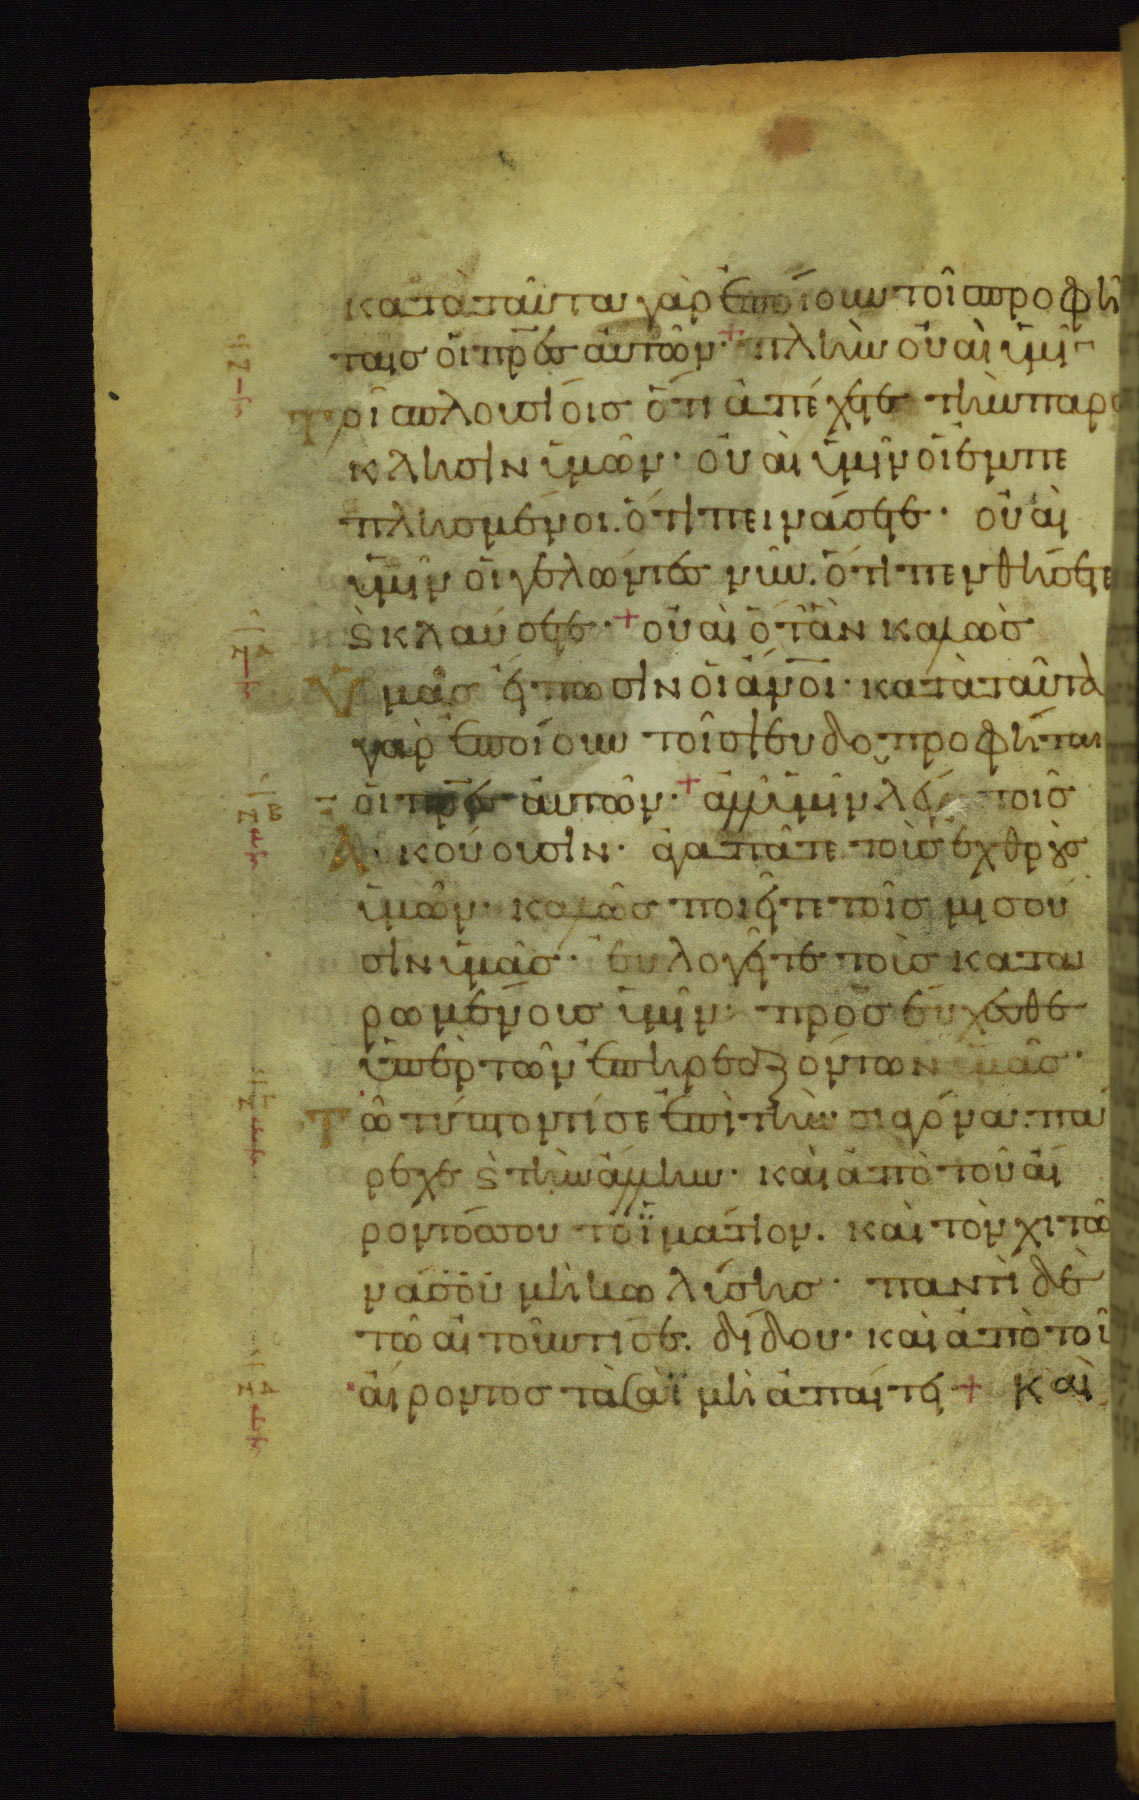 κατὰ ταῦτα γὰρ ἐποίουν τοῖσ προφή
ταισ οἱ πρ̅ε̅σ αὐτῶν· + πλὴν οὐαὶ ὑμῖν
τοῖσ πλουσίοισ ὅτι ἀπέχετε τὴν παρά
κλησιν ὑμῶν· οὐαὶ ὑμῖν οἱ ἐμπε
πλησμένοι. ὅτι πεινάσετε· οὐαὶ
ὑμῖν οἱ γελῶντεσ νῦν. ὅτι πενθήσετε
ϛ κλαύσετε· + οὐαὶ ὅταν καλῶσ
ὑμᾶσ εἴπωσιν οἱ ἀν̅ο̅ι· κατὰ ταῦτα
γὰρ ἐποίουν τοῖσ ψευδοπροφήταισ
οἱ πρ̅ε̅σ αὐτῶν· + ἀλλ' ὑμῖν λέγω τοῖσ
ἀκούουσιν· ἀγαπᾶτε τοὺσ ἐχθροὺσ
ὑμῶν· καλῶσ ποιεῖτε τοῖσ μισοῦ
σιν ὑμᾶσ· εὐλογεῖτε τοὺσ κατα
ρωμένουσ ὑμῖν· προσεύχεσθε
ὑπὲρ τῶν ἐπηρεαζόντων ὑμᾶσ·
τῶ τύπτοντί σε ἐπὶ τὴν σιαγόνα. πά
ρεχε ϛ τὴν ἄλλην· καὶ ἀπὸ τοῦ αἴ
ροντόσ σου τὸ ἱμάτιον. καὶ τὸν χιτῶ
νά σου μὴ κωλύσησ· παντὶ δὲ
τῶ αἰτοῦντί σε. δίδου· καὶ ἀπὸ τοῦ
αἴροντοσ τὰ σὰ μὴ ἀπαίτει + Καὶ